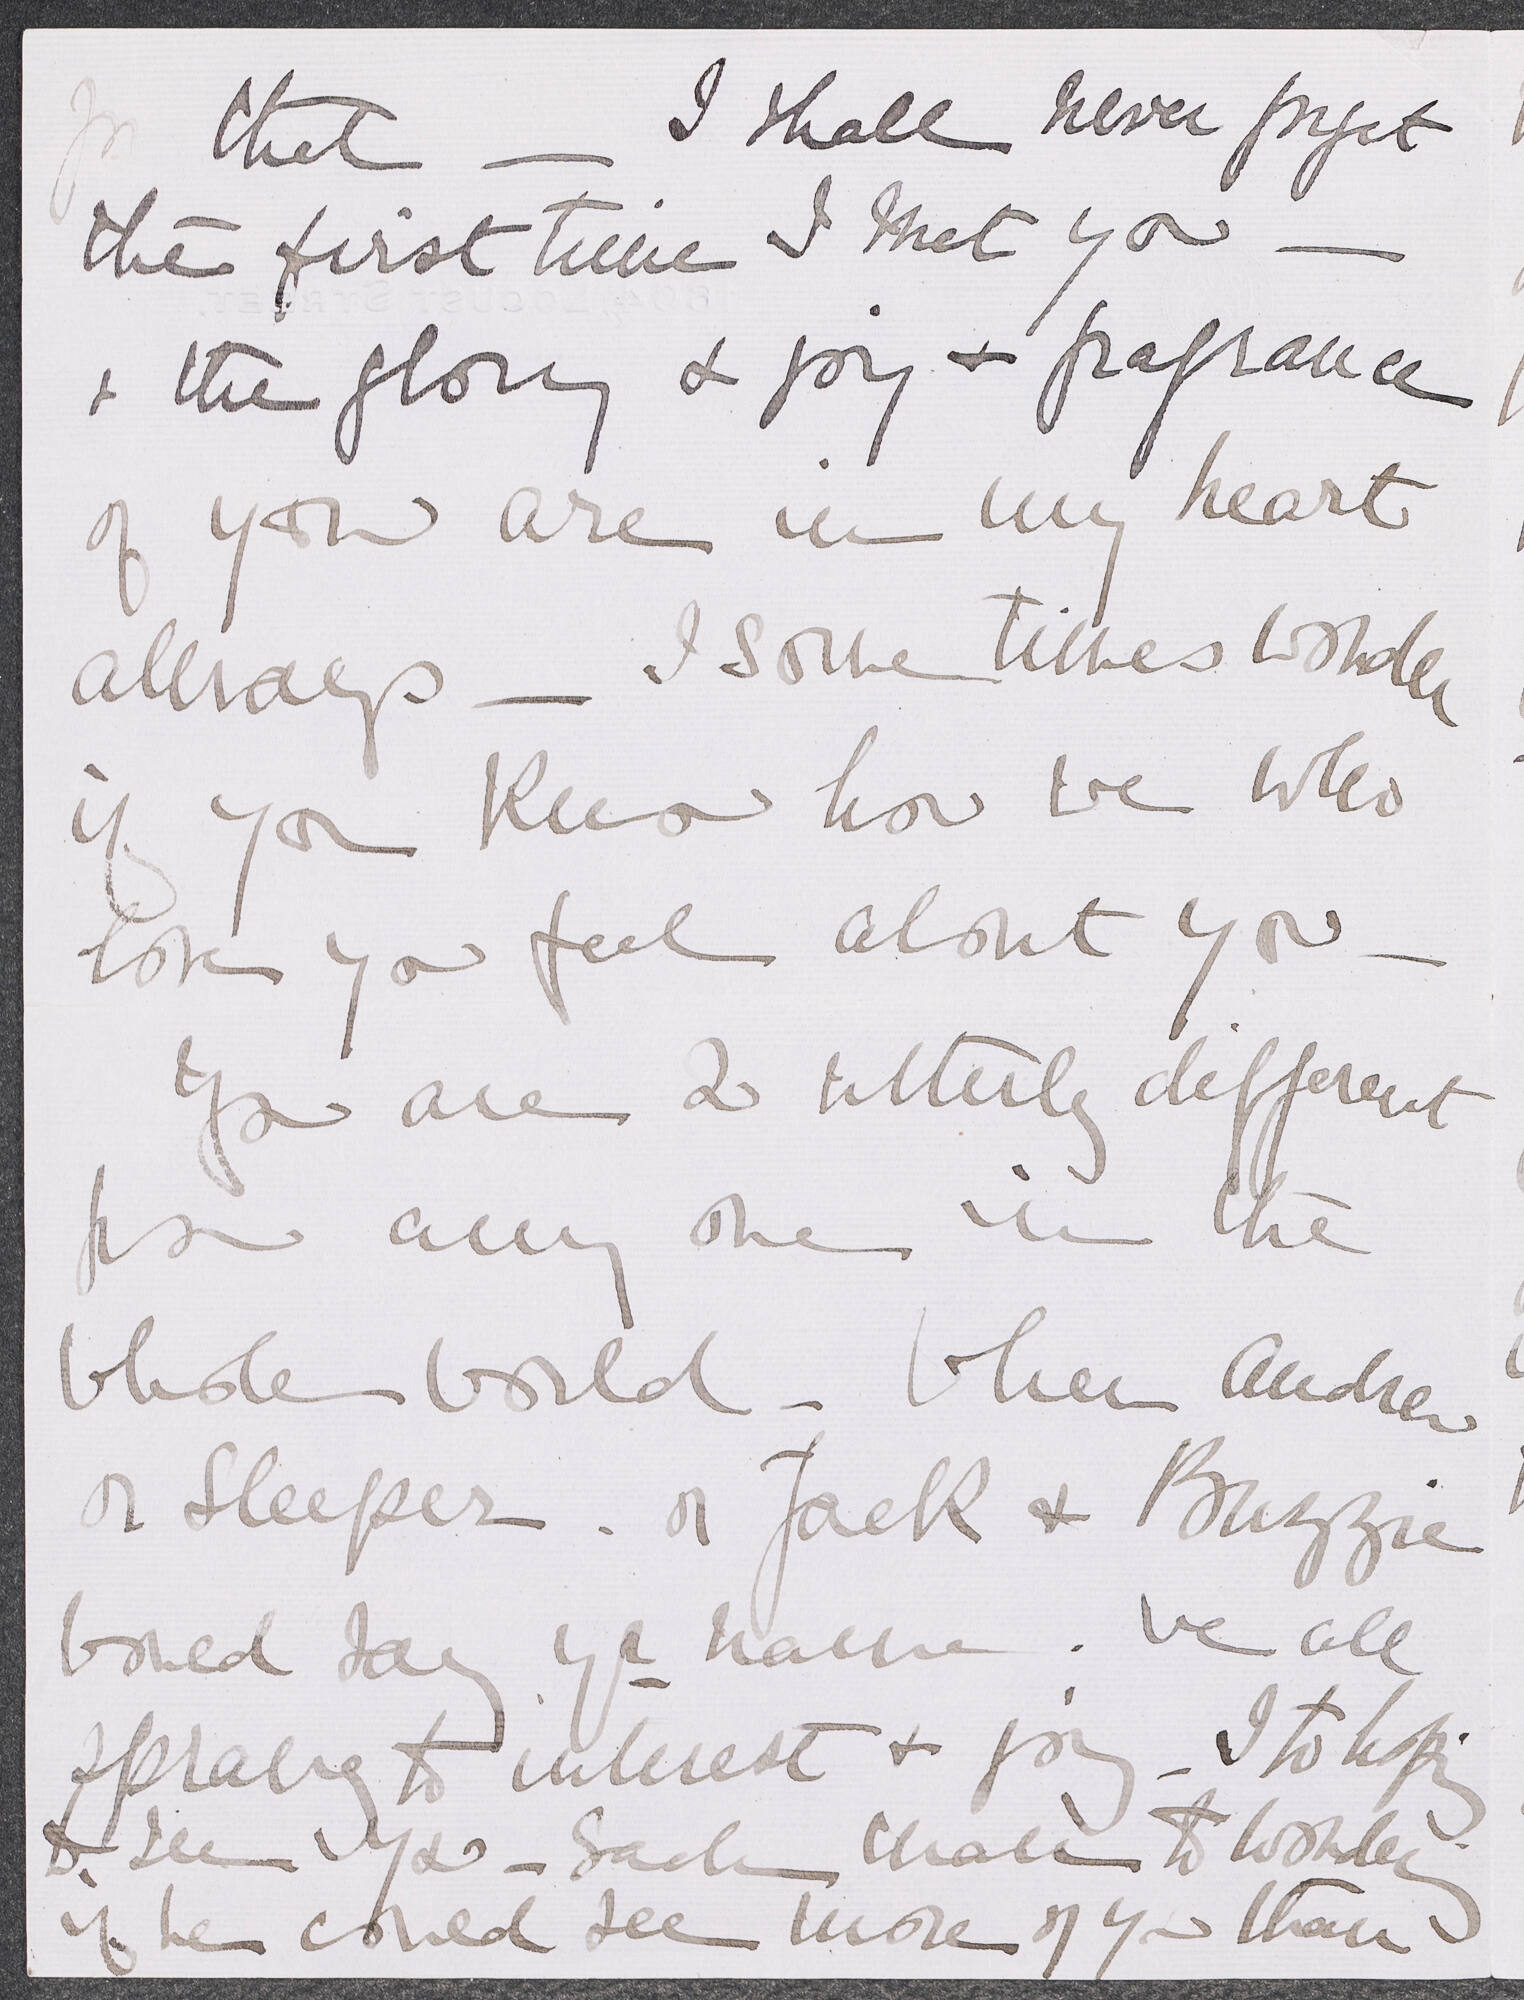 that — I shall never forget
the first time I met you —
+ the glory & joy + fragrance
of you are in my heart
always — I sometimes wonder
if you know how we who
love you feel about you —
You are 2 utterly different
from any one in the
whole world - When Andrew
or Sleeper . or Jack & Buzzie
would say yr name . we all
sprang to interest + joy - I to hoping
to see you - Each man to wondering
if he could see more of you than